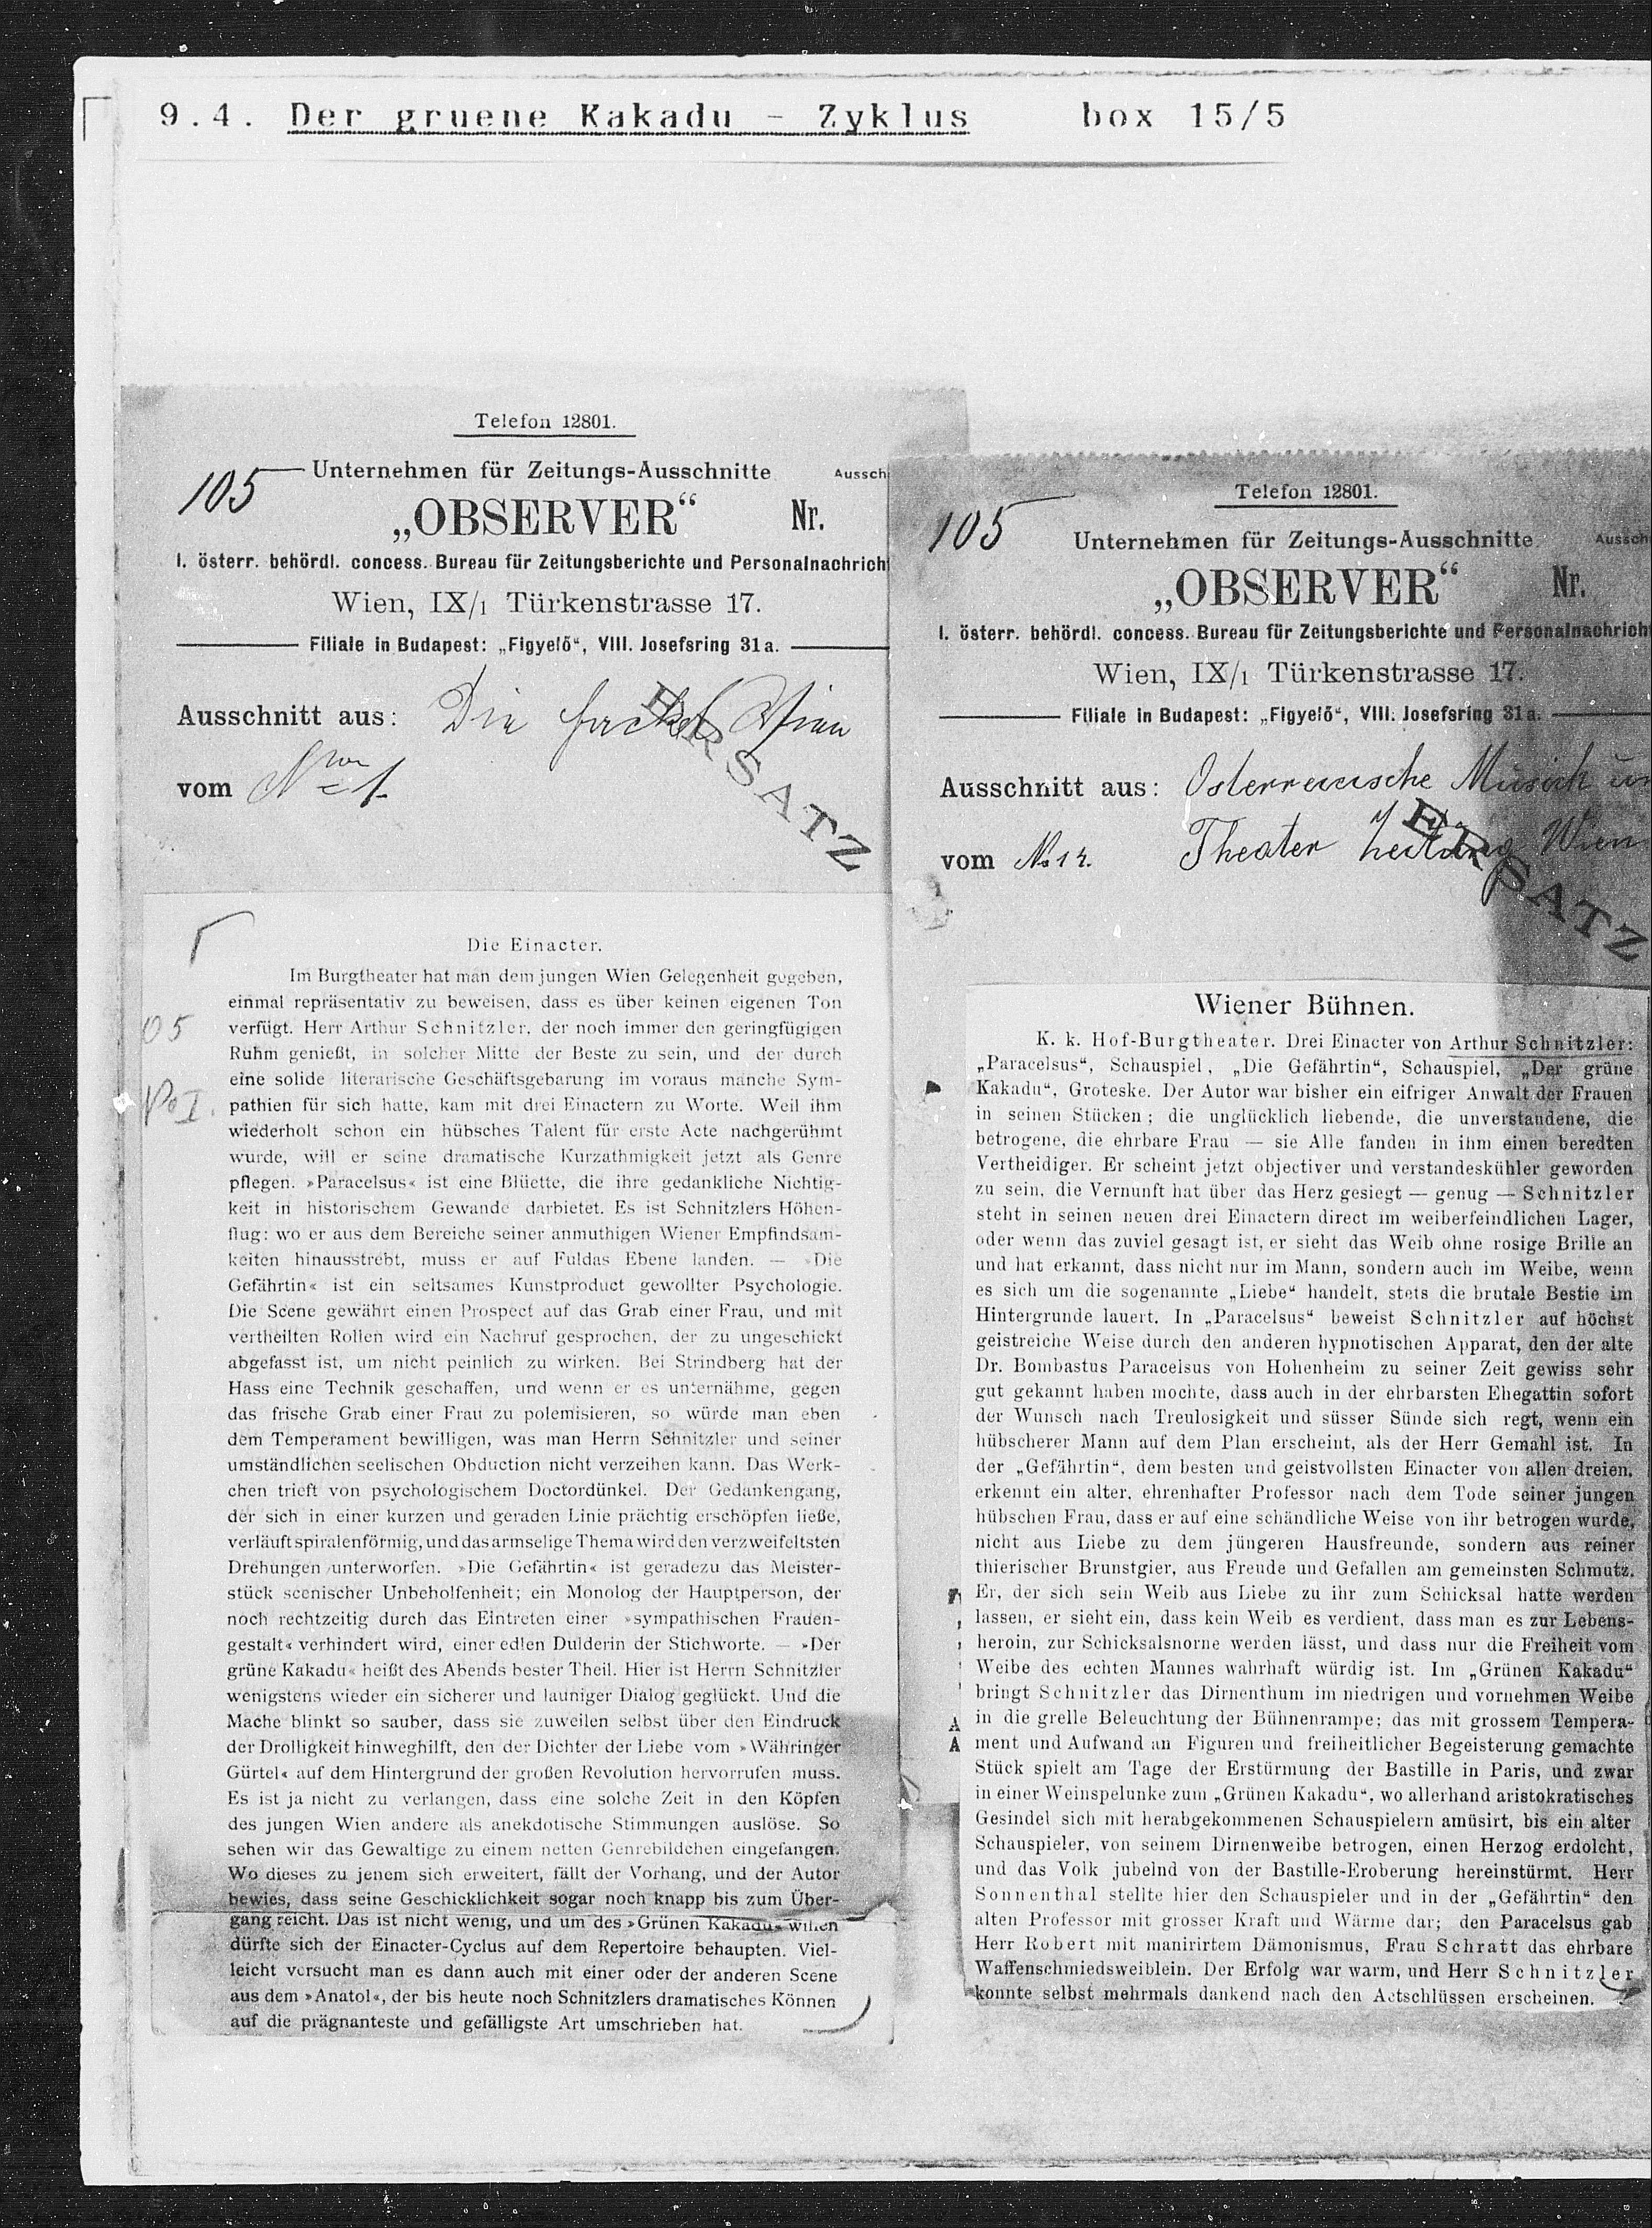 9.4. Der gruene Kakadu - Zyklus box 15/5
Telefon 12801.
105
Unternehmen für Zeitungs-Ausschnitte
Aussch
„OBSERVER“
Nr.
I. österr. behördl. concess. Bureau für Zeitungsberichte und Personalnachrich
Wien, IX/1 Türkenstrasse 17.
Filiale in Budapest: „Figyelő“, VIII. Josefsring 31a.
Ausschnitt aus: Die Fackel Wien
ERSATZ
vom Nro 1.
Die Einacter.
Im Burgtheater hat man dem jungen Wien Gelegenheit gegeben,
einmal repräsentativ zu beweisen, dass es über keinen eigenen Ton
verfügt. Herr Arthur Schnitzler, der noch immer den geringfügigen
Ruhm genießt, in solcher Mitte der Beste zu sein, und der durch
eine solide literarische Geschäftsgebarung im voraus manche Sym-
pathien für sich hatte, kam mit drei Einactern zu Worte. Weil ihm
wiederholt schon ein hübsches Talent für erste Acte nachgerühmt
wurde, will er seine dramatische Kurzathmigkeit jetzt als Genre
pflegen. »Paracelsus« ist eine Blüette, die ihre gedankliche Nichtig-
keit in historischem Gewande darbietet. Es ist Schnitzlers Höhen-
flug: wo er aus dem Bereiche seiner anmuthigen Wiener Empfindsam-
keiten hinausstrebt, muss er auf Fuldas Ebene landen. — »Die
Gefährtin« ist ein seltsames Kunstproduct gewollter Psychologie.
Die Scene gewährt einen Prospect auf das Grab einer Frau, und mit
vertheilten Rollen wird ein Nachruf gesprochen, der zu ungeschickt
abgefasst ist, um nicht peinlich zu wirken. Bei Strindberg hat der
Hass eine Technik geschaffen, und wenn er es unternähme, gegen
das frische Grab einer Frau zu polemisieren, so würde man eben
dem Temperament bewilligen, was man Herrn Schnitzler und seiner
umständlichen seelischen Obduction nicht verzeihen kann. Das Werk-
chen trieft von psychologischem Doctordünkel. Der Gedankengang,
der sich in einer kurzen und geraden Linie prächtig erschöpfen ließe,
verläuft spiralenförmig, und das armselige Thema wird den verzweifeltsten
Drehungen unterworfen. »Die Gefährtin« ist geradezu das Meister-
stück scenischer Unbeholfenheit; ein Monolog der Hauptperson, der
noch rechtzeitig durch das Eintreten einer »sympathischen Frauen-
gestalt« verhindert wird, einer edlen Dulderin der Stichworte. — »Der
grüne Kakadu« heißt des Abends bester Theil. Hier ist Herrn Schnitzler
wenigstens wieder ein sicherer und launiger Dialog geglückt. Und die
Mache blinkt so sauber, dass sie zuweilen selbst über den Eindruck
der Drolligkeit hinweghilft, den der Dichter der Liebe vom »Währinger
Gürtel« auf dem Hintergrund der großen Revolution hervorrufen muss.
Es ist ja nicht zu verlangen, dass eine solche Zeit in den Köpfen
des jungen Wien andere als anekdotische Stimmungen auslöse. So
sehen wir das Gewaltige zu einem netten Genrebildchen eingefangen.
Wo dieses zu jenem sich erweitert, fällt der Vorhang, und der Autor
bewies, dass seine Geschicklichkeit sogar noch knapp bis zum Über-
gang reicht. Das ist nicht wenig, und um des »Grünen Kakadu« willen
dürfte sich der Einacter-Cyclus auf dem Repertoire behaupten. Viel-
leicht versucht man es dann auch mit einer oder der anderen Scene
aus dem »Anatol«, der bis heute noch Schnitzlers dramatisches Können
auf die prägnanteste und gefälligste Art umschrieben hat.
05
No I.
Telefon 12801.
105
Unternehmen für Zeitungs-Ausschnitte
Aussch
„OBSERVER“
Nr.
I. österr. behördl. concess. Bureau für Zeitungsberichte und Personalnachrich
Wien, IX/1 Türkenstrasse 17.
Filiale in Budapest: „Figyelő“, VIII. Josefsring 31a.
Ausschnitt aus: Osterreichische Musick un
vom No 12. Theater Zeitung Wien
ERSATZ
Wiener Bühnen.
K. k. Hof-Burgtheater. Drei Einacter von Arthur Schnitzler:
„Paracelsus“, Schauspiel, „Die Gefährtin“, Schauspiel, „Der grüne
Kakadu“, Groteske. Der Autor war bisher ein eifriger Anwalt der Frauen
in seinen Stücken; die unglücklich liebende, die unverstandene, die
betrogene, die ehrbare Frau — sie Alle fanden in ihm einen beredten
Vertheidiger. Er scheint jetzt objectiver und verstandeskühler geworden
zu sein, die Vernunft hat über das Herz gesiegt — genug — Schnitzler
steht in seinen neuen drei Einactern direct im weiberfeindlichen Lager,
oder wenn das zuviel gesagt ist, er sieht das Weib ohne rosige Brille an
und hat erkannt, dass nicht nur im Mann, sondern auch im Weibe, wenn
es sich um die sogenannte „Liebe“ handelt, stets die brutale Bestie im
Hintergrunde lauert. In „Paracelsus“ beweist Schnitzler auf höchst
geistreiche Weise durch den anderen hypnotischen Apparat, den der alte
Dr. Bombastus Paracelsus von Hohenheim zu seiner Zeit gewiss sehr
gut gekannt haben mochte, dass auch in der ehrbarsten Ehegattin sofort
der Wunsch nach Treulosigkeit und süsser Sünde sich regt, wenn ein
hübscherer Mann auf dem Plan erscheint, als der Herr Gemahl ist. In
der „Gefährtin“, dem besten und geistvollsten Einacter von allen dreien,
erkennt ein alter, ehrenhafter Professor nach dem Tode seiner jungen
hübschen Frau, dass er auf eine schändliche Weise von ihr betrogen wurde,
nicht aus Liebe zu dem jüngeren Hausfreunde, sondern aus reiner
thierischer Brunstgier, aus Freude und Gefallen am gemeinsten Schmutz.
Er, der sich sein Weib aus Liebe zu ihr zum Schicksal hatte werden
lassen, er sieht ein, dass kein Weib es verdient, dass man es zur Lebens-
heroin, zur Schicksalsnorne werden lässt, und dass nur die Freiheit vom
Weibe des echten Mannes wahrhaft würdig ist. Im „Grünen Kakadu“
bringt Schnitzler das Dirnenthum im niedrigen und vornehmen Weibe
in die grelle Beleuchtung der Bühnenrampe; das mit grossem Tempera-
ment und Aufwand an Figuren und freiheitlicher Begeisterung gemachte
Stück spielt am Tage der Erstürmung der Bastille in Paris, und zwar
in einer Weinspelunke zum „Grünen Kakadu“, wo allerhand aristokratisches
Gesindel sich mit herabgekommenen Schauspielern amüsirt, bis ein alter
Schauspieler, von seinem Dirnenweibe betrogen, einen Herzog erdolcht,
und das Volk jubelnd von der Bastille-Eroberung hereinstürmt. Herr
Sonnenthal stellte hier den Schauspieler und in der „Gefährtin“ den
alten Professor mit grosser Kraft und Wärme dar; den Paracelsus gab
Herr Robert mit manirirtem Dämonismus, Frau Schratt das ehrbare
Waffenschmiedsweiblein. Der Erfolg war warm, und Herr Schnitzler
konnte selbst mehrmals dankend nach den Actschlüssen erscheinen.